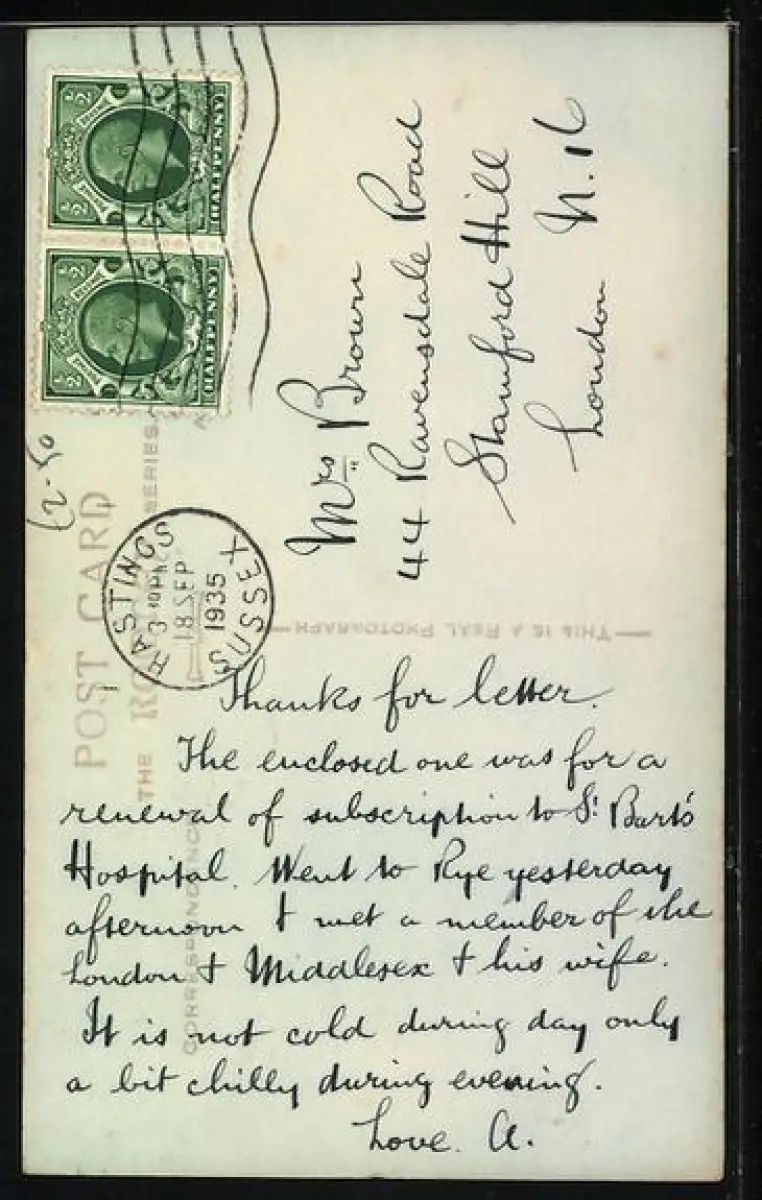 ½ ½
HALFPENNY
½ ½
HALFPENNY
£2-50
POST CARD
THE
SERIES.
HASTINGS
3 10 PM
18 SEP
1935
SUSSEX
Mrs Brown
44 Ravensdale Road
Stamford Hill
London N.16
THIS IS A REAL PHOTOGRAPH
CORRESPONDENCE
Thanks for letter.
The enclosed one was for a
renewal of subscription to St Bart's
Hospital. Went to Rye yesterday
afternoon & met a member of the
London & Middlesex & his wife.
It is not cold during day only
a bit chilly during evening.
Love. A.